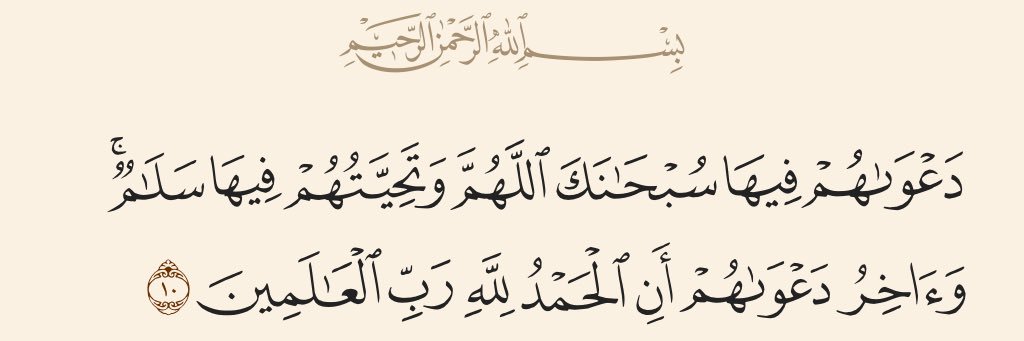 بِسْمِ ٱللَّهِ ٱلرَّحْمَٰنِ ٱلرَّحِيمِ
دَعْوَىٰهُمْ فِيهَا سُبْحَٰنَكَ ٱللَّهُمَّ وَتَحِيَّتُهُمْ فِيهَا سَلَٰمٌۚ
وَءَاخِرُ دَعْوَىٰهُمْ أَنِ ٱلْحَمْدُ لِلَّهِ رَبِّ ٱلْعَٰلَمِينَ ١٠